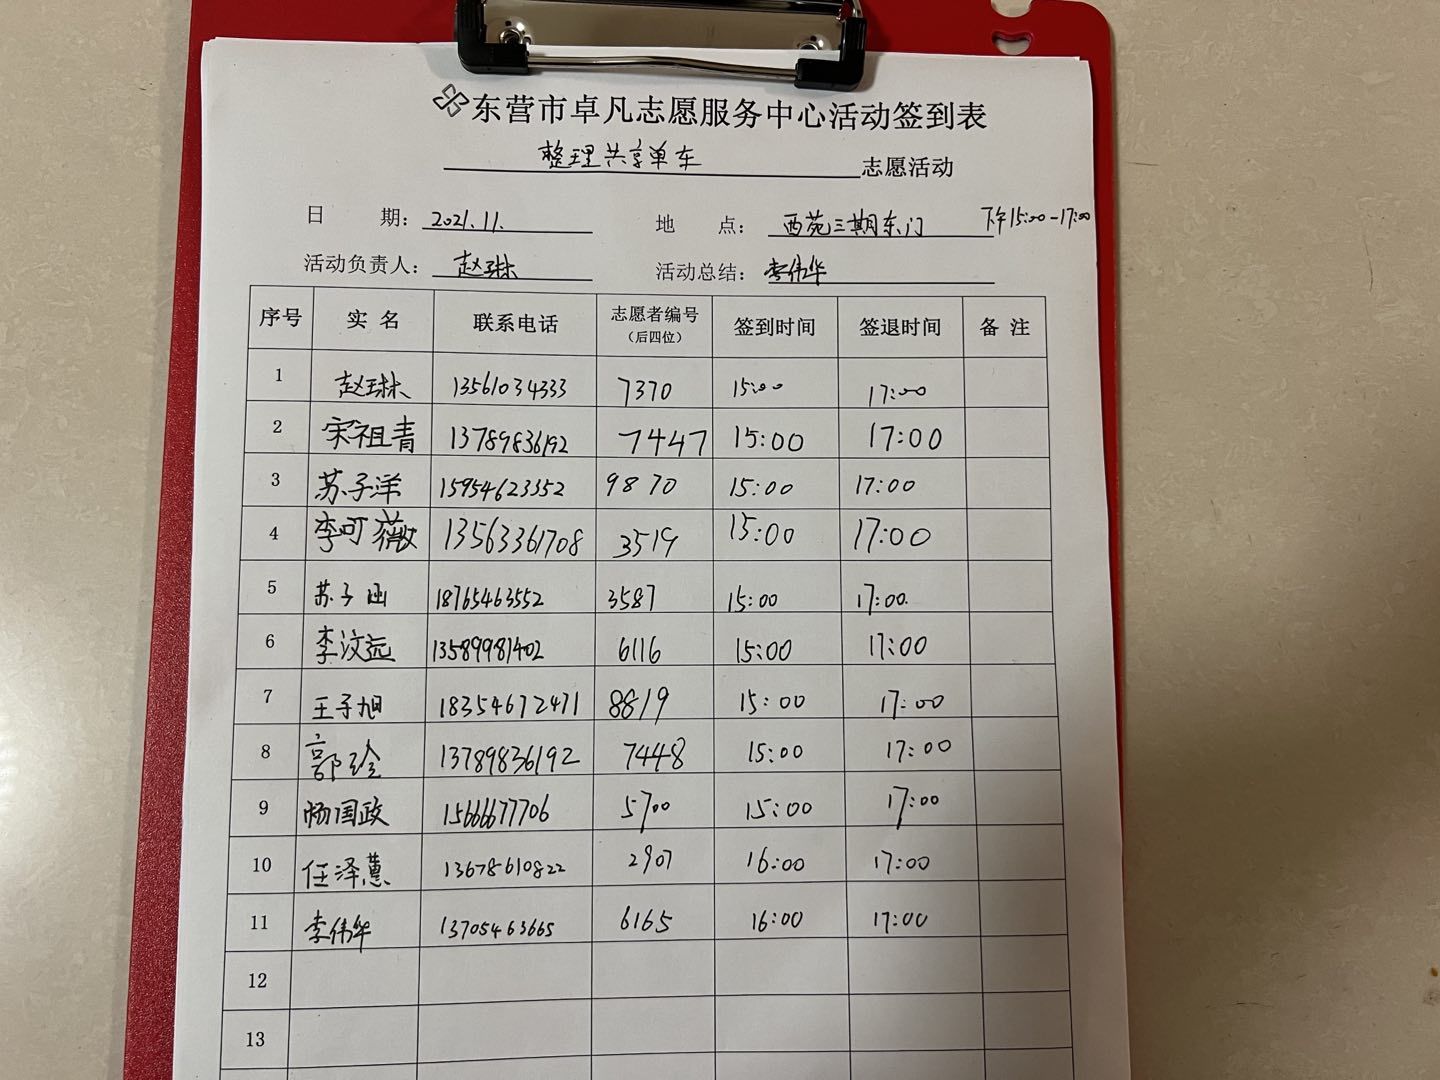 东营市卓凡志愿服务中心活动签到表
整理共享单车 志愿活动
日 期: 2021.11. 地 点: 西苑三期东门 下午15:00-17:00
活动负责人: 赵琳 活动总结: 李伟华
序号 实 名 联系电话 志愿者编号 (后四位) 签到时间 签退时间 备 注
1 赵琳 13561034333 7370 15:00 17:00
2 宋祖青 13789836192 7447 15:00 17:00
3 苏子洋 15954623352 9870 15:00 17:00
4 李可薇 13563361708 3519 15:00 17:00
5 苏子涵 18765463552 3587 15:00 17:00
6 李汶远 13589981402 6116 15:00 17:00
7 王子旭 18354672471 8819 15:00 17:00
8 郭玲 13789836192 7448 15:00 17:00
9 杨国政 15666677706 5700 15:00 17:00
10 任泽蕙 13678610822 2907 16:00 17:00
11 李伟华 13705463665 6165 16:00 17:00
12
13